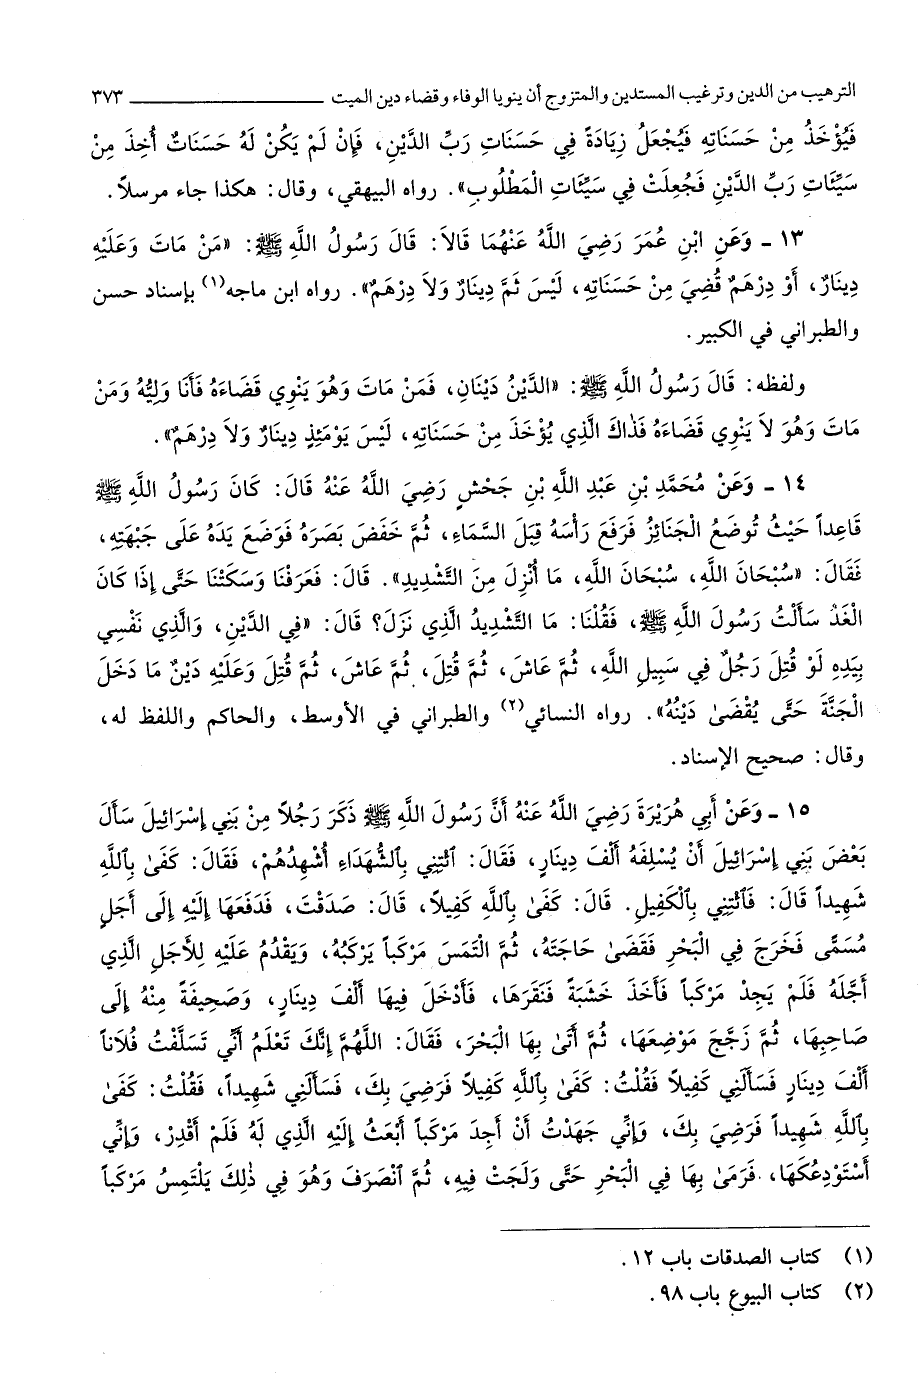 الترهيب من الدين وترغيب المستدين والمتزوج أن ينويا الوفاء وقضاء دين الميت ــــــــــــــــــــ ٣٧٣
فَيُؤْخَذُ مِنْ حَسَنَاتِهِ فَيُجْعَلُ زِيَادَةً فِي حَسَنَاتِ رَبِّ الدَّيْنِ، فَإِنْ لَمْ يَكُنْ لَهُ حَسَنَاتٌ أُخِذَ مِنْ
سَيِّئَاتِ رَبِّ الدَّيْنِ فَجُعِلَتْ فِي سَيِّئَاتِ الْمَطْلُوبِ». رواه البيهقي، وقال: هكذا جاء مرسلاً.
١٣ ـ وَعَنِ ابْنِ عُمَرَ رَضِيَ اللَّهُ عَنْهُمَا قَالاَ: قَالَ رَسُولُ اللَّهِ ﷺ: «مَنْ مَاتَ وَعَلَيْهِ
دِينَارٌ، أَوْ دِرْهَمٌ قُضِيَ مِنْ حَسَنَاتِهِ، لَيْسَ ثَمَّ دِينَارٌ وَلاَ دِرْهَمٌ». رواه ابن ماجه(١) بإسناد حسن
والطبراني في الكبير.
ولفظه: قَالَ رَسُولُ اللَّهِ ﷺ: «الدَّيْنُ دَيْنَانِ، فَمَنْ مَاتَ وَهُوَ يَنْوِي قَضَاءَهُ فَأَنَا وَلِيُّهُ وَمَنْ
مَاتَ وَهُوَ لاَ يَنْوِي قَضَاءَهُ فَذَاكَ الَّذِي يُؤْخَذُ مِنْ حَسَنَاتِهِ، لَيْسَ يَوْمَئِذٍ دِينَارٌ وَلاَ دِرْهَمٌ».
١٤ ـ وَعَنْ مُحَمَّدِ بْنِ عَبْدِ اللَّهِ بْنِ جَحْشٍ رَضِيَ اللَّهُ عَنْهُ قَالَ: كَانَ رَسُولُ اللَّهِ ﷺ
قَاعِداً حَيْثُ تُوضَعُ الْجَنَائِزُ فَرَفَعَ رَأْسَهُ قِبَلَ السَّمَاءِ، ثُمَّ خَفَضَ بَصَرَهُ فَوَضَعَ يَدَهُ عَلَى جَبْهَتِهِ،
فَقَالَ: «سُبْحَانَ اللَّهِ، سُبْحَانَ اللَّهِ، مَا أُنْزِلَ مِنَ التَّشْدِيدِ». قَالَ: فَعَرَفْنَا وَسَكَتْنَا حَتَّى إِذَا كَانَ
الْغَدُ سَأَلْتُ رَسُولَ اللَّهِ ﷺ، فَقُلْنَا: مَا التَّشْدِيدُ الَّذِي نَزَلَ؟ قَالَ: «فِي الدَّيْنِ، وَالَّذِي نَفْسِي
بِيَدِهِ لَوْ قُتِلَ رَجُلٌ فِي سَبِيلِ اللَّهِ، ثُمَّ عَاشَ، ثُمَّ قُتِلَ، ثُمَّ عَاشَ، ثُمَّ قُتِلَ وَعَلَيْهِ دَيْنٌ مَا دَخَلَ
الْجَنَّةَ حَتَّى يُقْضَىٰ دَيْنُهُ». رواه النسائي(٢) والطبراني في الأوسط، والحاكم واللفظ له،
وقال: صحيح الإسناد.
١٥ ـ وَعَنْ أَبِي هُرَيْرَةَ رَضِيَ اللَّهُ عَنْهُ أَنَّ رَسُولَ اللَّهِ ﷺ ذَكَرَ رَجُلاً مِنْ بَنِي إِسْرَائِيلَ سَأَلَ
بَعْضَ بَنِي إِسْرَائِيلَ أَنْ يُسْلِفَهُ أَلْفَ دِينَارٍ، فَقَالَ: ائْتِنِي بِالشُّهَدَاءِ أُشْهِدُهُمْ، فَقَالَ: كَفَىٰ بِٱللَّهِ
شَهِيداً قَالَ: فَٱئْتِنِي بِالْكَفِيلِ. قَالَ: كَفَىٰ بِٱللَّهِ كَفِيلاً، قَالَ: صَدَقْتَ، فَدَفَعَهَا إِلَيْهِ إِلَى أَجَلٍ
مُسَمًّى فَخَرَجَ فِي الْبَحْرِ فَقَضَىٰ حَاجَتَهُ، ثُمَّ الْتَمَسَ مَرْكَباً يَرْكَبُهُ، وَيَقْدُمُ عَلَيْهِ لِلأَجَلِ الَّذِي
أَجَّلَهُ فَلَمْ يَجِدْ مَرْكَباً فَأَخَذَ خَشَبَةً فَنَقَرَهَا، فَأَدْخَلَ فِيهَا أَلْفَ دِينَارٍ، وَصَحِيفَةً مِنْهُ إِلَى
صَاحِبِهَا، ثُمَّ زَجَّجَ مَوْضِعَهَا، ثُمَّ أَتَىٰ بِهَا الْبَحْرَ، فَقَالَ: اللَّهُمَّ إِنَّكَ تَعْلَمُ أَنِّي تَسَلَّفْتُ فُلاَناً
أَلْفَ دِينَارٍ فَسَأَلَنِي كَفِيلاً فَقُلْتُ: كَفَىٰ بِٱللَّهِ كَفِيلاً فَرَضِيَ بِكَ، فَسَأَلَنِي شَهِيداً، فَقُلْتُ: كَفَىٰ
بِٱللَّهِ شَهِيداً فَرَضِيَ بِكَ، وَإِنِّي جَهَدْتُ أَنْ أَجِدَ مَرْكَباً أَبْعَثُ إِلَيْهِ الَّذِي لَهُ فَلَمْ أَقْدِرْ، وَإِنِّي
أَسْتَوْدِعُكَهَا، فَرَمَىٰ بِهَا فِي الْبَحْرِ حَتَّى وَلَجَتْ فِيهِ، ثُمَّ ٱنْصَرَفَ وَهُوَ فِي ذٰلِكَ يَلْتَمِسُ مَرْكَباً
(١) كتاب الصدقات باب ١٢.
(٢) كتاب البيوع باب ٩٨.